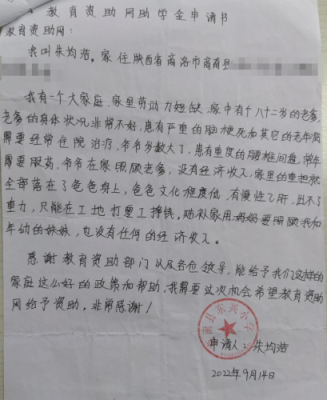 教育资助网助学金申请书
教育资助网：
我叫朱均浩。家住陕西省商洛市商南县
我有一个大家庭，家里劳动力短缺，家中有个八十二岁的老爹，
老爹的身体状况非常不好，患有严重的脑梗死和其它的老年病
需要经常住院治疗，爷爷岁数大了，患有重度的腰椎间盘，常年
需要服药，爷爷在家照顾老爹，没有经济收入，家里的重担就
全部落在了爸爸身上，爸爸文化程度低，有慢性乙肝，且不了
重力，只能在工地打零工挣钱。
年幼的妹妹，也没有任何的经济收入。
感谢教育资助部门以及各位领导，能给予我们这样的
家庭这么好的政策和帮助，我需要这次机会希望教育资助
网给予资助，非常感谢！
申请人：朱均浩
2022年9月14日